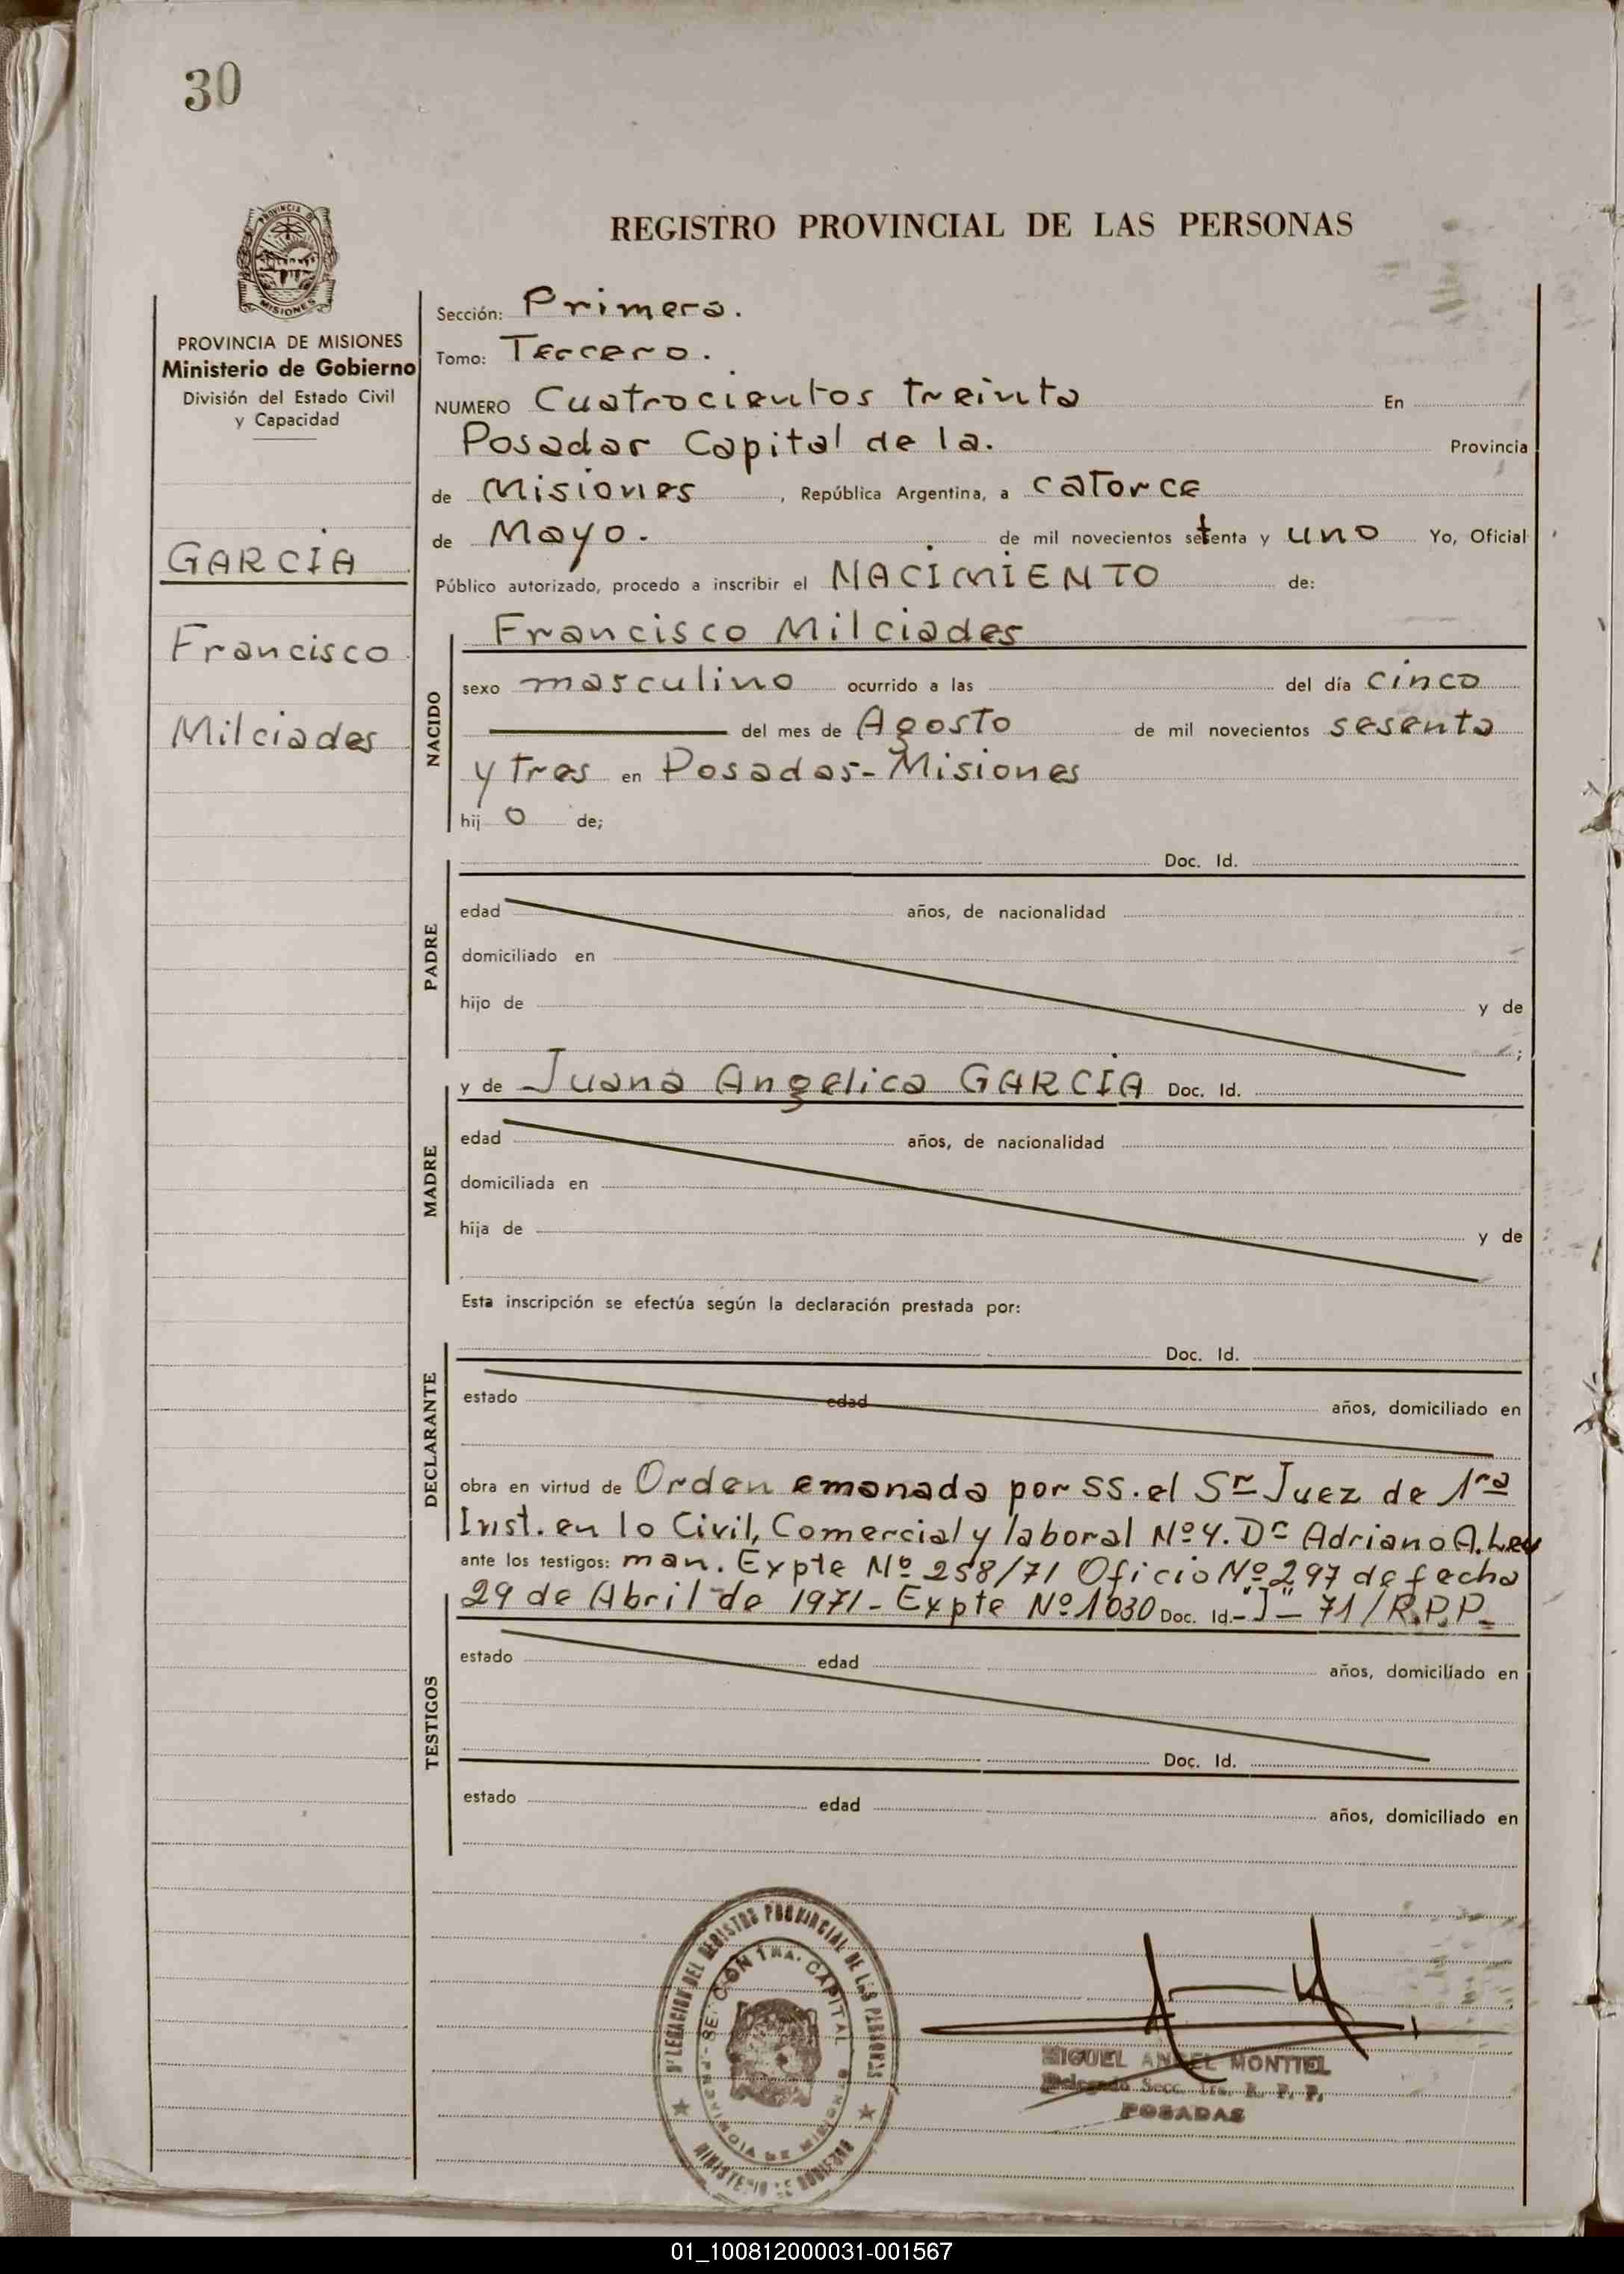 30
PROVINCIA DE
MISIONES
PROVINCIA DE MISIONES
Ministerio de Gobierno
División del Estado Civil
y Capacidad
GARCÍA
Francisco
Milciades
REGISTRO PROVINCIAL DE LAS PERSONAS
Sección: Primera.
Tomo: Tercero.
NUMERO Cuatrocientos treinta En
Posadas Capital de la. Provincia
de Misiones, República Argentina, a catorce
de Mayo. de mil novecientos setenta y uno Yo, Oficial
Público autorizado, procedo a inscribir el NACIMIENTO de:
NACIDO
Francisco Milciades
sexo masculino ocurrido a las del día cinco
del mes de Agosto de mil novecientos sesenta
y tres en Posadas-Misiones
hij o de;
PADRE
Doc. Id.
edad años, de nacionalidad
domiciliado en
hijo de y de
;
MADRE
y de Juana Angelica GARCÍA Doc. Id.
edad años, de nacionalidad
domiciliada en
hija de y de
Esta inscripción se efectúa según la declaración prestada por:
DECLARANTE
Doc. Id.
estado edad años, domiciliado en
obra en virtud de Orden emanada por SS. el Sr Juez de 1ra
Inst. en lo Civil, Comercial y laboral Nº 4. Dr Adriano A. Leu
ante los testigos: man. Expte Nº 258/71 Oficio Nº 297 de fecha
29 de Abril de 1971 - Expte Nº 1030 Doc. Id. - "J" - 71/R.P.P.
TESTIGOS
estado edad años, domiciliado en
Doc. Id.
estado edad años, domiciliado en
DELEGACION DEL REGISTRO PROVINCIAL DE LAS PERSONAS
SECCION 1RA. CAPITAL
PROVINCIA DE MISIONES
MINISTERIO DE GOBIERNO
MIGUEL ANGEL MONTIEL
Delegado Secc. 1ra. R. P. P.
POSADAS
01_100812000031-001567